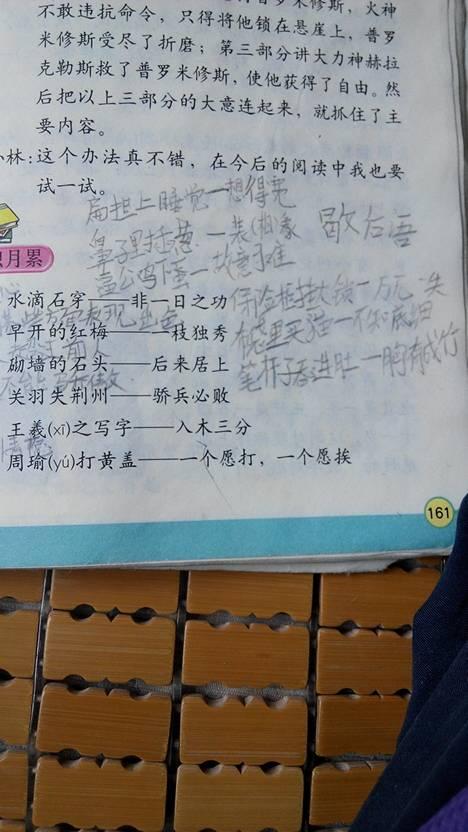 不敢违抗命令，只得将他锁在悬崖上，普罗
米修斯受尽了折磨；第三部分讲大力神赫拉
克勒斯救了普罗米修斯，使他获得了自由。然
后把以上三部分的大意连起来，就抓住了主
要内容。
小林：这个办法真不错，在今后的阅读中我也要
试一试。
扁担上睡觉一想得宽
鼻子里插葱一装象
歇后语
公鸡下蛋一故意刁难
积月累
水滴石穿——非一日之功
保险柜挂大锁一万无一失
早开的红梅——一枝独秀
里买猫一不知底细
砌墙的石头——后来居上
笔杆子吞进肚一胸有成竹
关羽失荆州——骄兵必败
王羲(xī)之写字——入木三分
周瑜(yú)打黄盖——一个愿打，一个愿挨
161